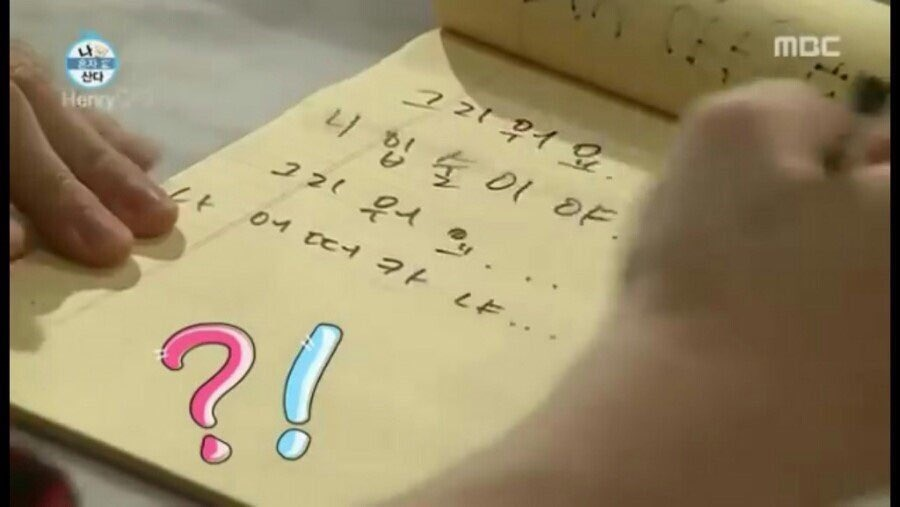 나
혼자
산다
Henry
MBC
그리워요.
니 입술이야.
그리워요...
나 어떠카냐...
?!